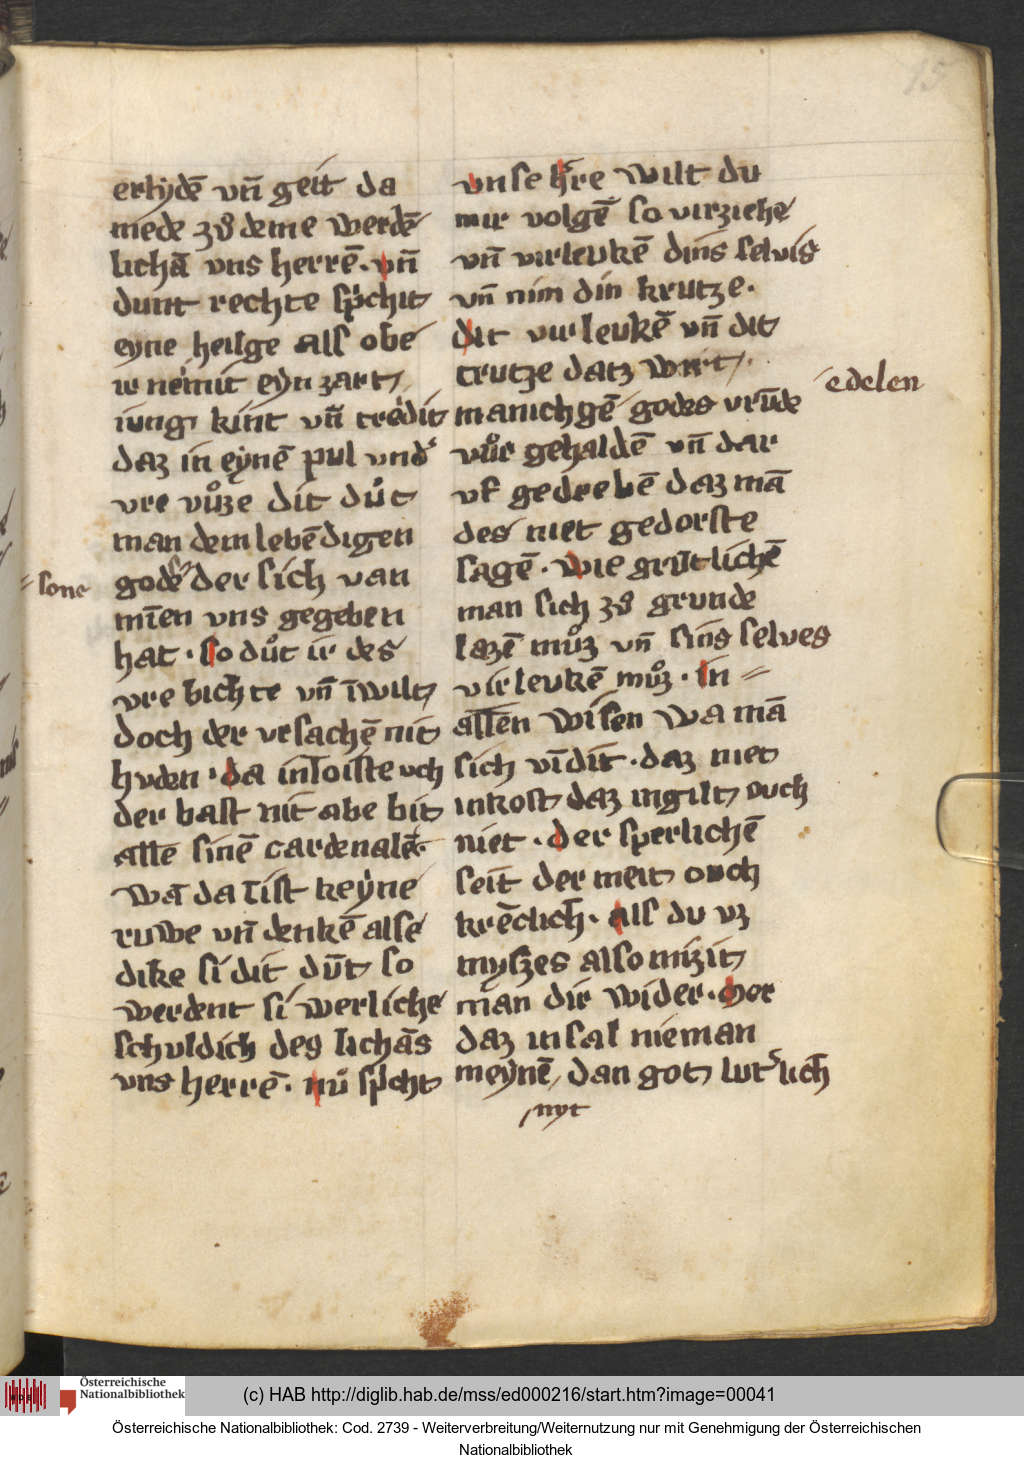 15
erlydē vn̄ geit da
mede zů deme werdē
lichā vns herrē · vn̄
dunt rechte sp̄chit
eyne heilge als obe
ir nemit eyn zart
iung kint vn̄ tredit
daz in eynē pul vnd'
vre vůze dit důt
man dem lebēdigen
gode der sich van
mīen vns gegeben
sone
hat · so důt ir des
vre bichte vn̄ īwilt
doch der vrsachē nit
huden · da in loiste och
der bast nit abe bit
allē sinē cardenalē
wā da īist keyne
ruwe vn̄ denkē alse
dike si dit dūt so
werdent si werliche
schuldich des lichās
vns herrē · nů sp̄cht
vnse h're wilt du
mir volgē so virzihe
vn̄ virleukē dins selvis
vn̄ nim din krutze ·
dit virleukē vn̄ dit
crutze datz wirt ·
manichgē godes vrūde
edelen
vůr gehaldē vn̄ dar
vf gedrebē daz mā
des niet gedorste
sagē · wie grūtlichē
man sich zů grunde
lazē můz vn̄ sins selves
virleukē můz · in
allen wisen wa mā
sich vīdit · daz niet
inkost daz ingilt ouch
niet · der sperlichē
seit der meit ouch
krēclich · als du vz
myszes also mizit
man dir wider · mer
daz in sal nieman
meynē dan got lut'lich
nyt
Österreichische
Nationalbibliothek
(c) HAB http://diglib.hab.de/mss/ed000216/start.htm?image=00041
Österreichische Nationalbibliothek: Cod. 2739 - Weiterverbreitung/Weiternutzung nur mit Genehmigung der Österreichischen
Nationalbibliothek